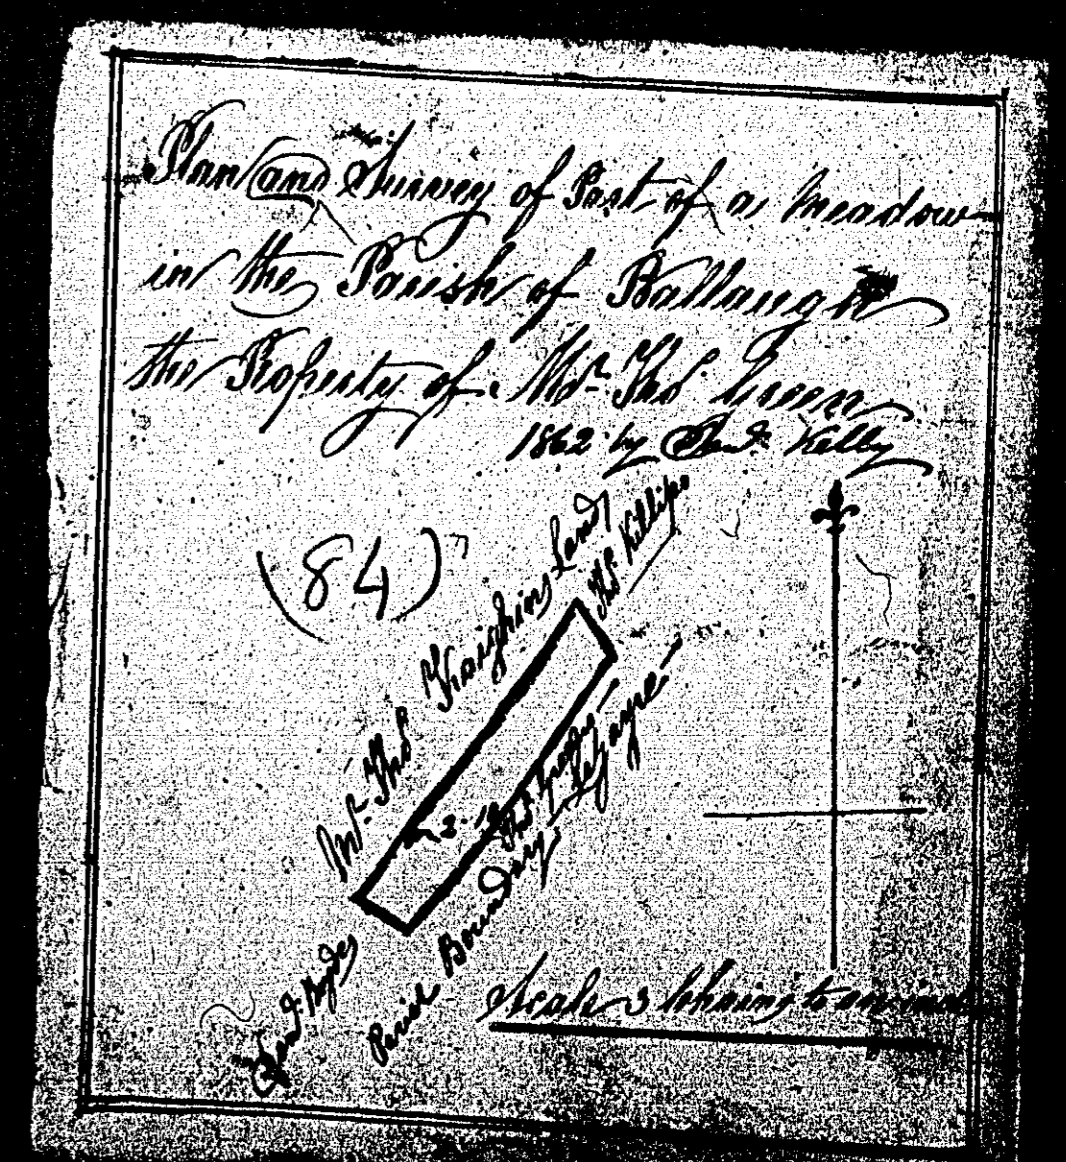 Plan and Survey of Part of a Meadow
in the Parish of Ballaugh
the Property of Mr. Thos. Green
1862 by Kelly
(84)
Mr. Thos. Kaighins Land
Thos. Killips
Parish Boundary
Lezayre
Scale 3 Chains to an inch